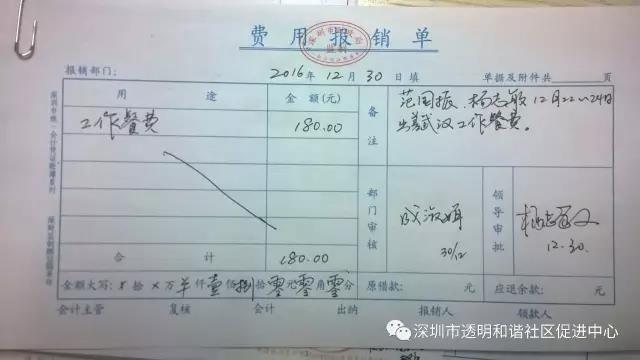 费用报销单
报销部门： 2016年12月30日填 单据及附件共 页
用途 金额(元) 备注
工作餐费 180.00
范国振、杨志敏12月22～24日
出差武汉工作餐费。
部门审核 领导审批
30/12
12.30.
合计 180.00
金额大写：¥拾×万 仟壹佰捌拾零元零角零分 原借款： 元 应退余款： 元
会计主管 复核 会计 出纳 报销人 领款人
深圳市透明和谐社区促进中心